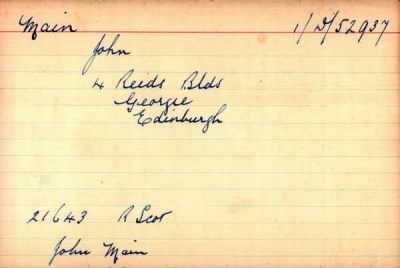 Main 1/D/52937
John
4 Reids Blds
Georgie
Edinburgh
21643 R Scot
John Main